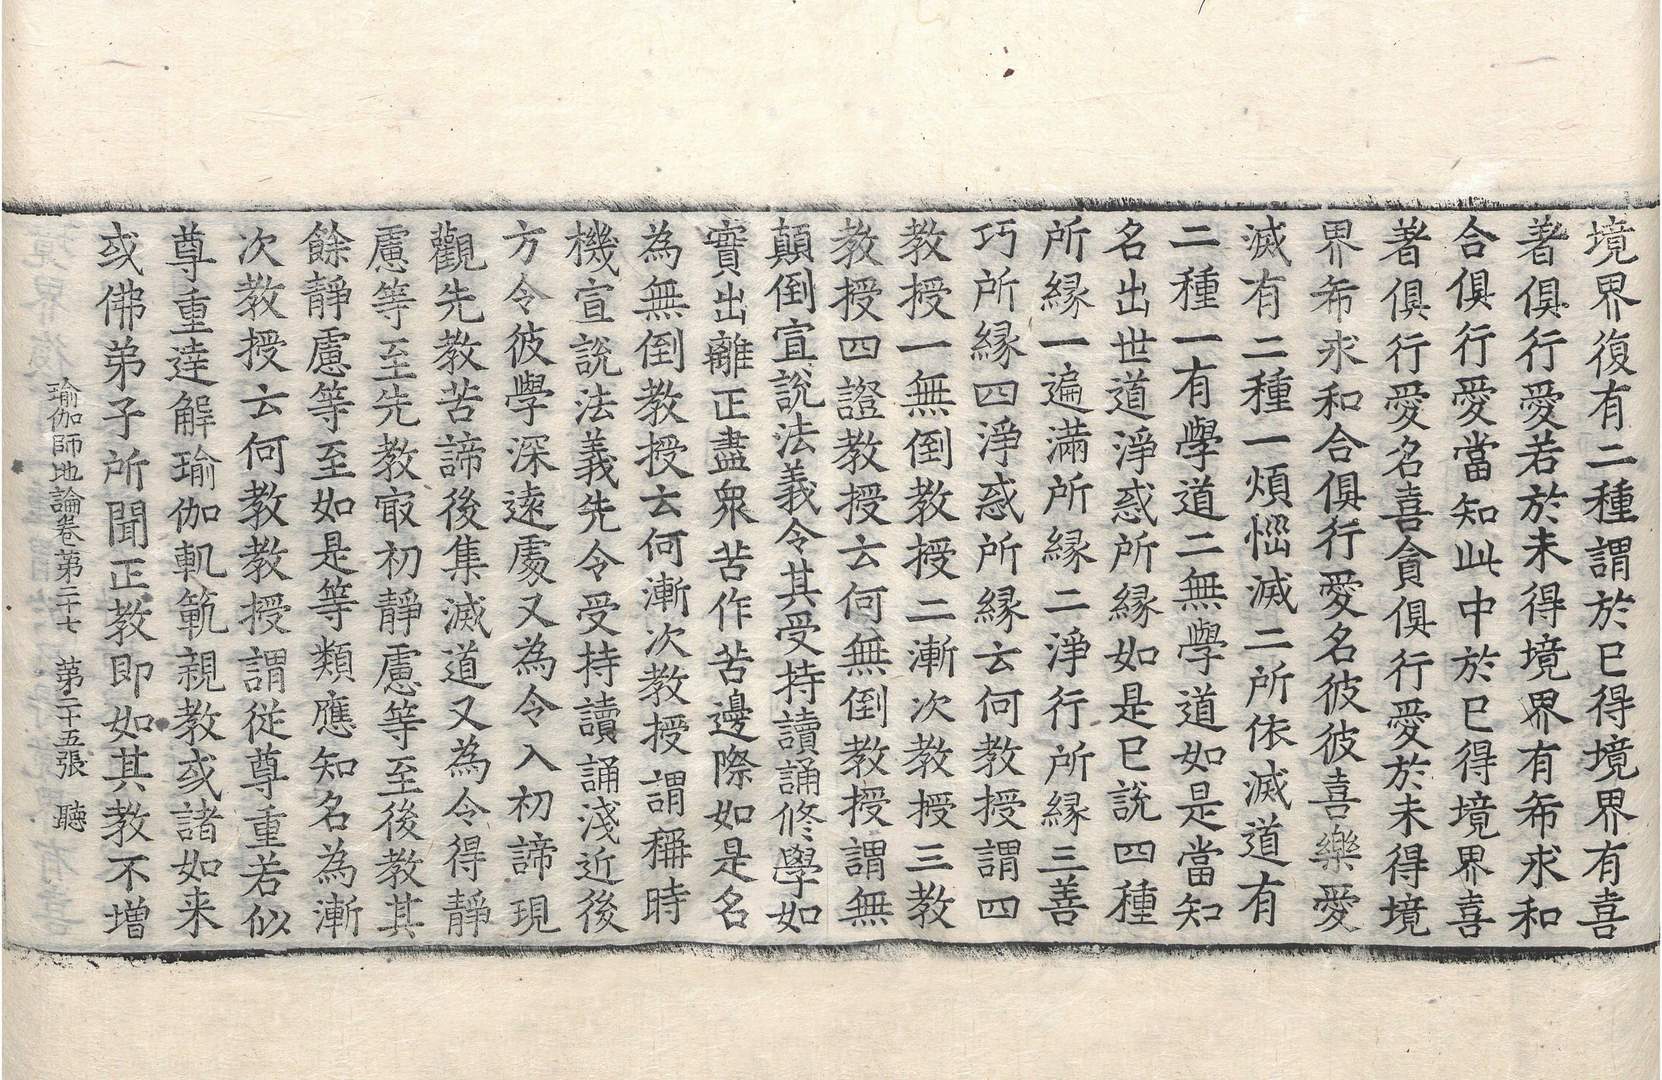 境界復有二種謂於已得境界有喜
著俱行愛若於未得境界有希求和
合俱行愛當知此中於已得境界喜
著俱行愛名喜貪俱行愛於未得境
界希求和合俱行愛名彼彼喜樂愛
滅有二種一煩惱滅二所依滅道有
二種一有學道二無學道如是當知
名出世道淨惑所緣如是已說四種
所緣一遍滿所緣二淨行所緣三善
巧所緣四淨惑所緣云何教授謂四
教授一無倒教授二漸次教授三教
教授四證教授云何無倒教授謂無
顛倒宣說法義令其受持讀誦修學如
實出離正盡衆苦作苦邊際如是名
為無倒教授云何漸次教授謂稱時
機宣說法義先令受持讀誦淺近後
方令彼學深遠處又為令入初諦現
觀先教苦諦後集滅道又為令得靜
慮等至先教㝡初靜慮等至後教其
餘靜慮等至如是等類應知名為漸
次教授云何教教授謂從尊重若似
尊重達解瑜伽軌範親教或諸如来
或佛弟子所聞正教即如其教不增
瑜伽師地論卷第二十七 第二十五張 聽